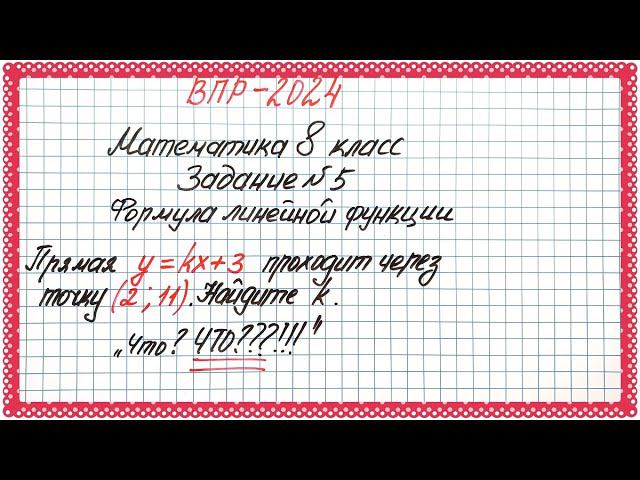 ВПР-2024
Математика 8 класс
Задание №5
Формула линейной функции
Прямая y=kx+3 проходит через
точку (2;11). Найдите k.
„Что? ЧТО???!!!"